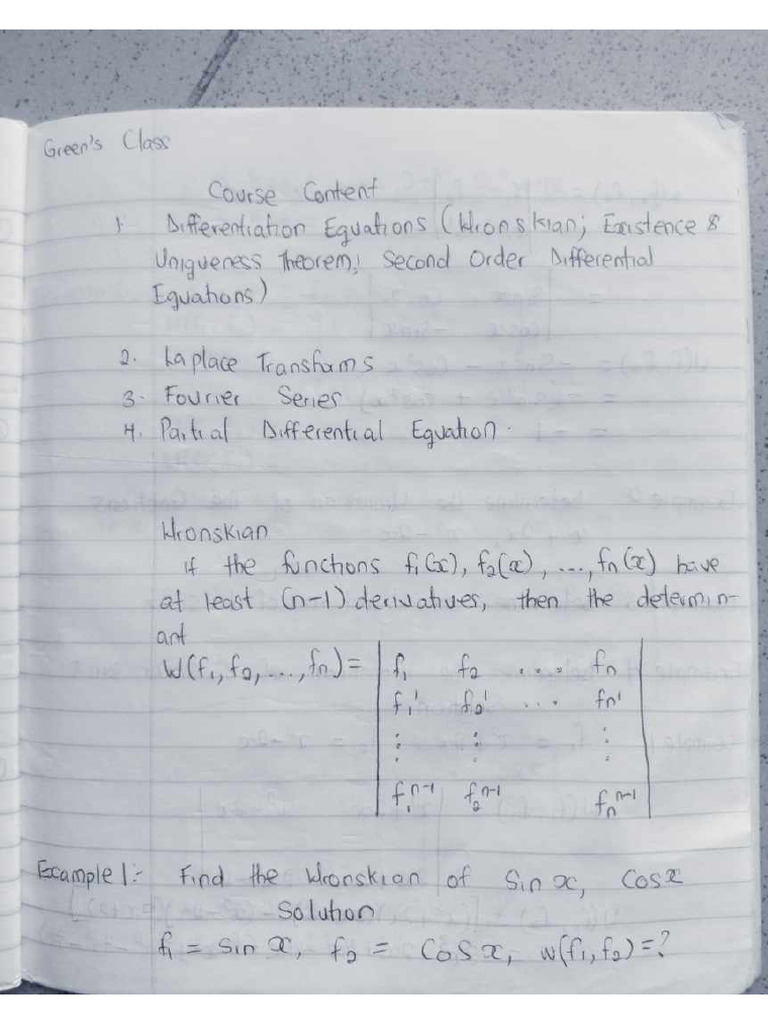 Green's Class
Course Content
1. Differentiation Equations (Wronskian; Existence &
Uniqueness Theorem; Second Order Differential
Equations)
2. Laplace Transforms
3. Fourier Series
4. Partial Differential Equation.
Wronskian
if the functions f₁(x), f₂(x), ..., fn(x) have
at least (n-1) derivatives, then the determin-
ant
W(f₁, f₂, ..., fn) = | f₁ f₂ .... fn |
| f₁' f₂' ... fn' |
| ⋮ ⋮ ⋮ |
| f₁ⁿ⁻¹ f₂ⁿ⁻¹ fnⁿ⁻¹ |
Example 1:- Find the Wronskian of Sin x, Cos x
Solution
f₁ = Sin x, f₂ = Cos x, w(f₁, f₂) = ?